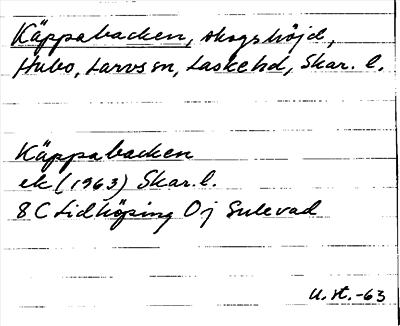 Käppabacken, skogshöjd,
Hubo, Larvs sn, Laske hd, Skar. l.
Käppabacken
ek (1963) Skar. l.
8C Lidköping 0j Sulevad
U. st. -63